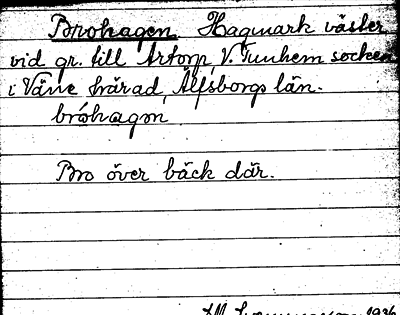 Brohagen. Hagmark väster
vid gr. till Artorp, V. Tunhem socken
i Väne härad, Älfsborgs län.
bróhagən
Bro över bäck där.
1936